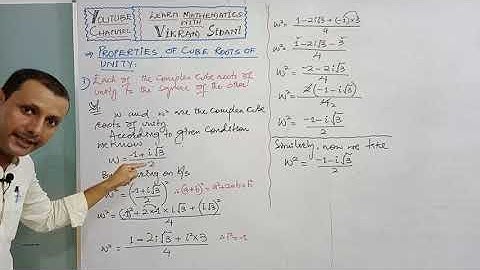 YOUTUBE CHANNEL
LEARN MATHEMATICS
WITH
VIKRAM SIDANI
⇒ PROPERTIES OF CUBE ROOTS OF
UNITY:
1) Each of the Complex Cube roots of
unity is the Square of the other
w and w² are the Complex Cube
roots of unity
According to given Condition
we know
w = (-1 + i√3)/2
on b/s
w² = ((-1 + i√3)/2)² ∴ (a+b)² = a²+2ab+b²
w² = ((-1)² + 2 × -1 × i√3 + (i√3)²)/4
w² = (1 - 2i√3 + i² × 3)/4 ∴ i² = -1
w² = (1 - 2i√3 + (-1) × 3)/4
w² = (1 - 2i√3 - 3)/4
w² = (-2 - 2i√3)/4
w² = 2(-1 - i√3)/4 2
w² = (-1 - i√3)/2
Similarly, now we take
w² = (-1 - i√3)/2